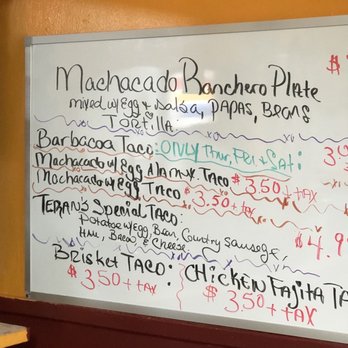 Machacado Ranchero Plate $
mixed w/Egg & Salsa, PAPAS, Beans
Tortilla
Barbacoa Taco: ONLY Thur, Fri & Sat: 3
Machacado w/ Egg A La Mex. Taco $3.50 + TAX
Machacado w/ Egg Taco $3.50 + TAX
Teran's Special Taco: $4.9
Potatoe w/ Egg, Bean, Country Sausage,
Ham, Bacon & Cheese
Brisket Taco: Chicken Fajita TA
$3.50 + TAX $3.50 + TAX